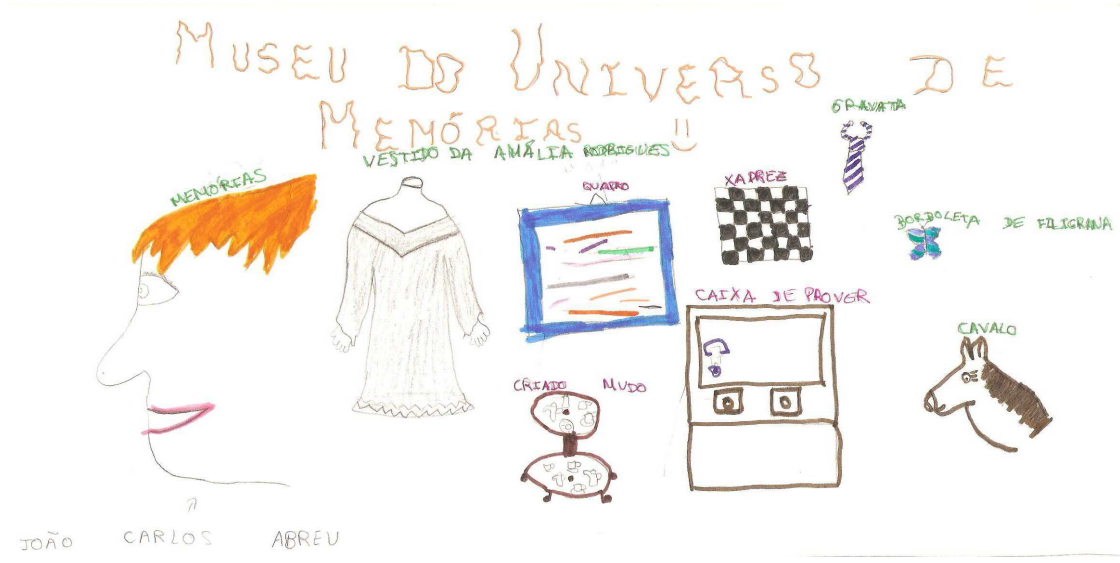 MUSEU DO UNIVERSO DE
MEMÓRIAS
GRAVATA
VESTIDO DA AMÁLIA RODRIGUES
MEMÓRIAS
QUADRO
XADREZ
BORBOLETA DE FILIGRANA
CAIXA DE PROVER
CAVALO
CRIADO MUDO
JOÃO CARLOS ABREU